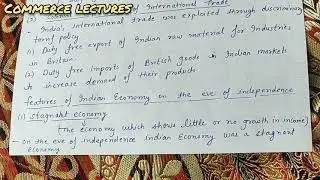 COMMERCE LECTURES
International Trade
India's international trade was exploited through discriminatory
tariff policy
(1) Duty free export of Indian raw material for Industries
in Britain
(2) Duty free imports of British Goods in Indian markets
to increase demand of their products
features of Indian Economy on the eve of independence
(1) Stagnant economy
The economy which shows little or no growth in income
- on the eve of independence Indian Economy was a stagnant
economy